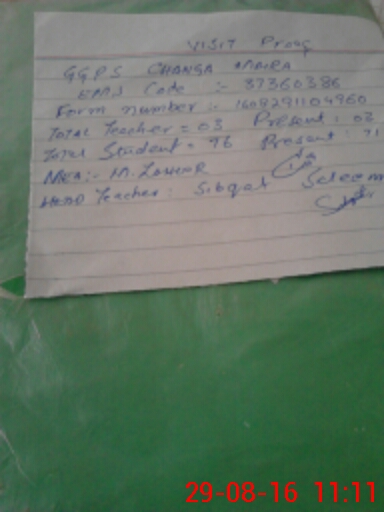 VISIT Proof
GGPS CHANGA MAIRA
EMIS Code :- 37360386
Form number :- 1608291104960
Total Teacher = 03 Present : 02
Total Student = 96 Present : 71
MEA :- M. ZAHEER
HEAD Teacher : Sibqat Saleem
29-08-16 11:11